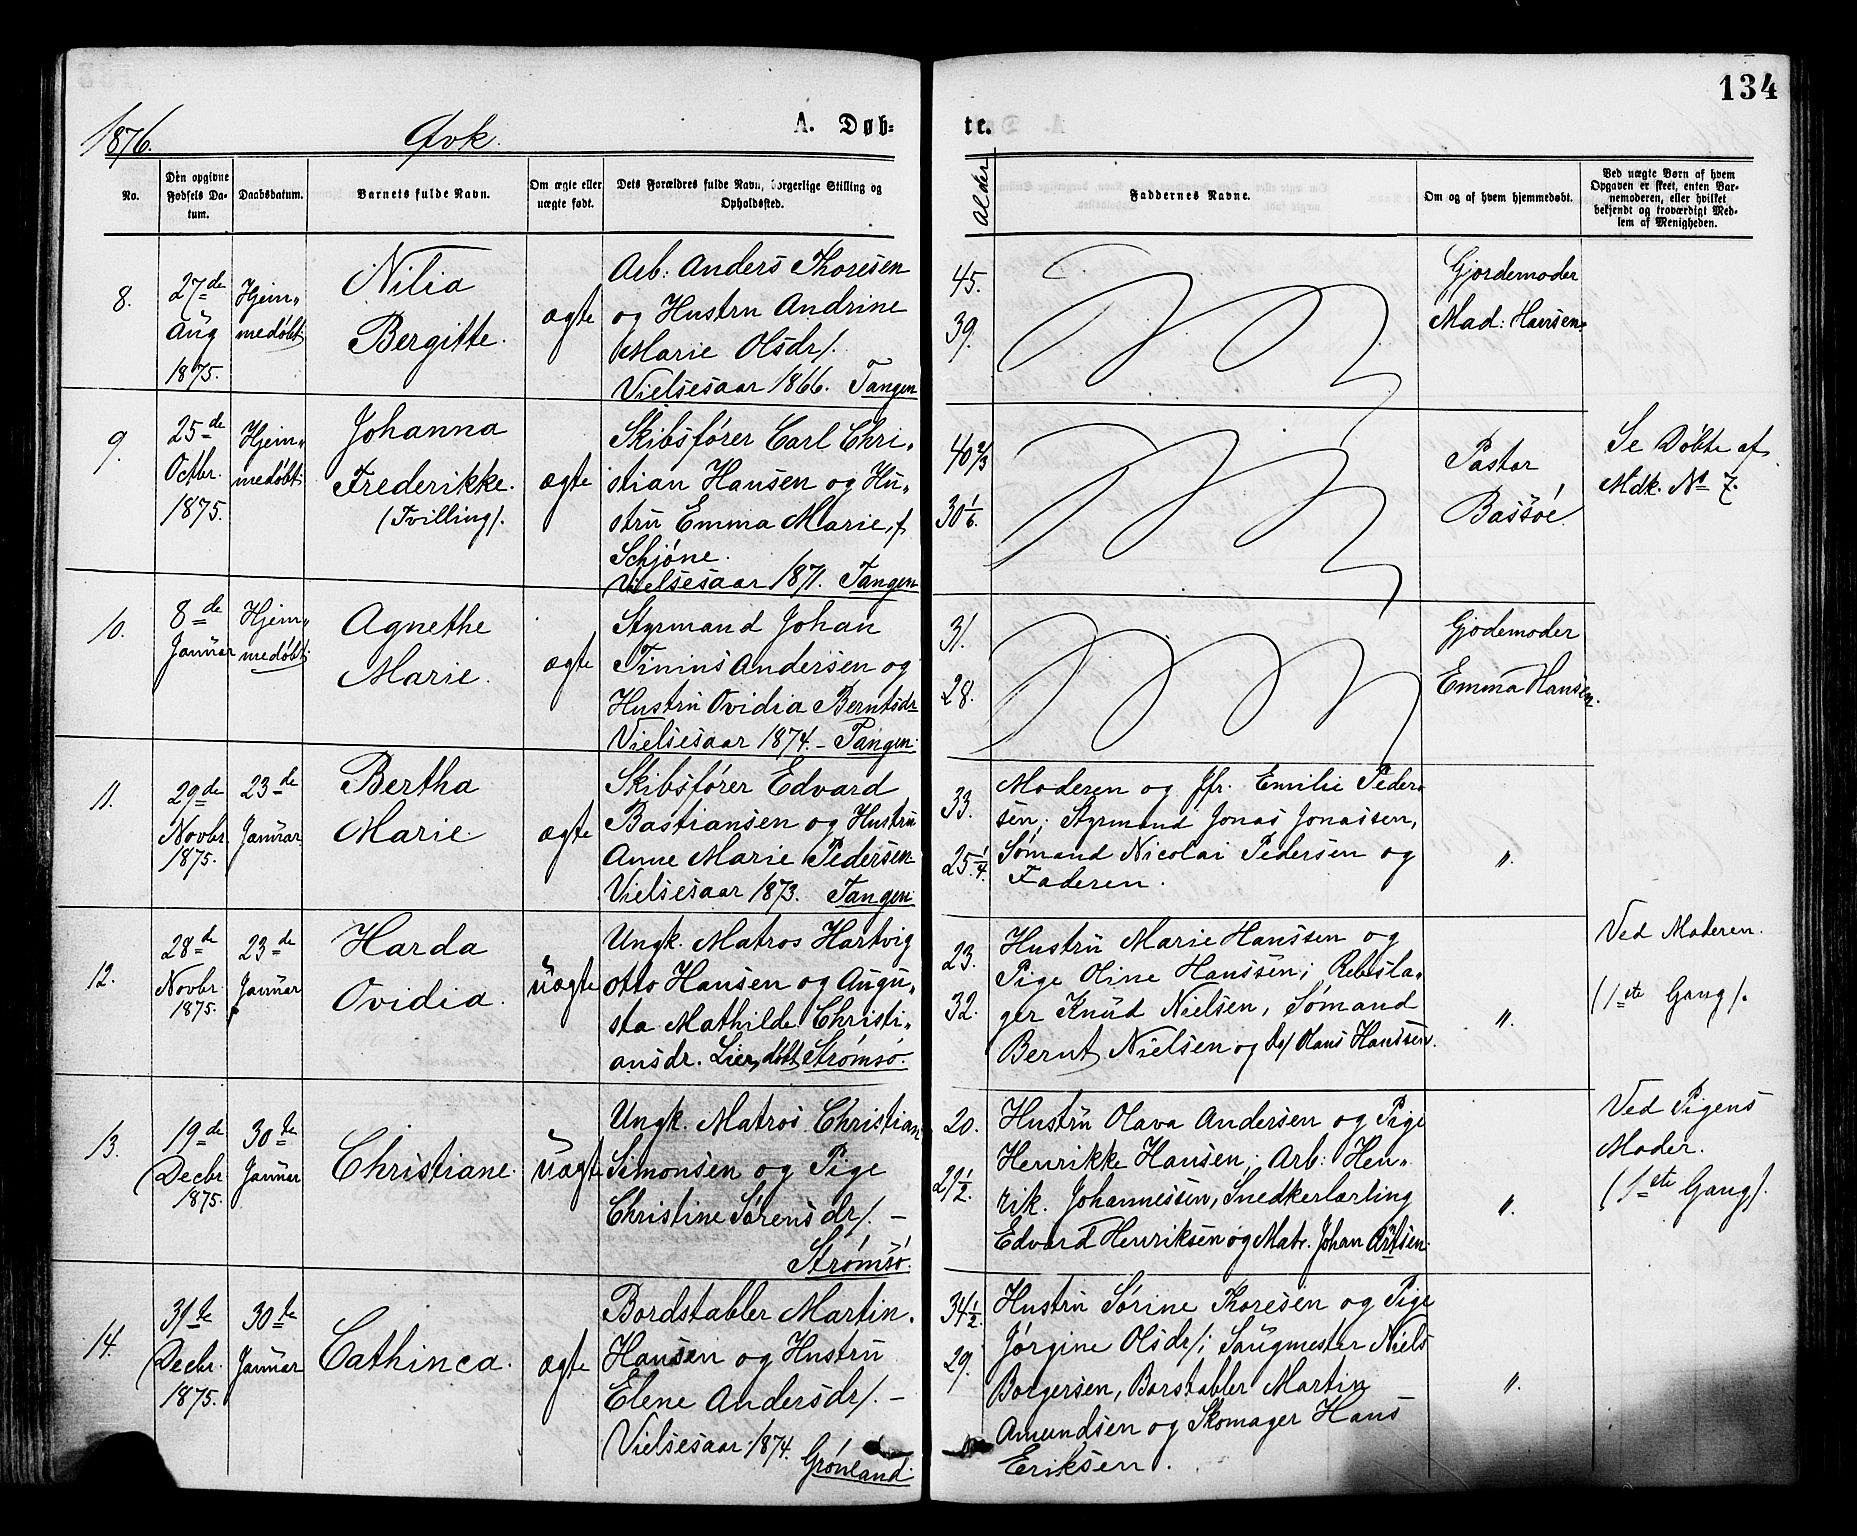 134
1876. Qvk. A. Døb- te.
No.
Den opgivne Fødsels Datum.
Daabsdatum.
Barnets fulde Navn.
Om ægte eller uægte født.
Dets Forældres fulde Navn, borgerlige Stilling og Opholdssted.
Alder
Faddernes Navne.
Om og af hvem hjemmedøbt.
Ved uægte Børn af hvem Opgaven er skeet, enten Barnemoderen, eller hvilket bekjendt og troværdigt Medlem af Menigheden.
8.
27de
Aug
1875.
Hjem„
medøbt
Nilia
Bergitte.
ægte
Arb: Anders Thoresen
og Hustru Andrine
Marie Olsdr/.
Vielsesaar 1866. Tangen
45.
39.
Gjordemoder
Mad: Hansen.
9.
25de
Octbr.
1875.
Hjem„
medøbt
Johanna
Frederikke.
(Tvilling/.
ægte
Skibsfører Carl Chri„
stian Hansen og Hu„
stru Emma Marie, f
Schjøne.
Vielsesaar 1871. Tangen
40 2/3
30 1/6.
Pastor
Bassøe.
Se Døbte af
Mdk. No 7.
10.
8de
Januar
Hjem„
medøbt
Agnethe
Marie.
ægte
Styrmand Johan
Tinius Andersen og
Hustru Ovidia Berntsdr
Vielsesaar 1874. – Tangen.
31.
28.
Gjodemoder
Emma Hansen.
11.
29de
Novbr
1875.
23de
Januar
Bertha
Marie.
ægte
Skibsfører Edvard
Bastiansen og Hustru
Anne Marie Pedersen
Vielsesaar 1873. Tangen
33.
25 1/4.
Moderen og Jfr. Emilie Peder„
sen; Styrmand Jonas Jonassen,
Sømand Nicolai Pedersen og
Faderen.
„.
12.
28de
Novbr
1875.
23de
Januar
Harda
Ovidia.
uægte
Ungk. Matros Hartvig
Otto Hansen og Augu„
sta Mathilde Christi„
ansdr. Lier, døbt Strømsø.
23.
32.
Hustru Marie Hanssen og
Pige Oline Hanssen; Rebsla„
ger Knud Nielsen, Sømand
Bernt Nielsen og do/ Olaus Hanssen.
„.
Ved Moderen.
(1ste Gang/.
13.
19de
Decbr
1875.
30te
Januar
Christiane.
uægte
Ungk. Matros Christian
Simonsen og Pige
Christine Sørensdr/. –
Strømsø.
20.
21 1/2.
Hustru Olava Andersen og Pige
Henrikke Hansen; Arb: Hen„
rik. Johannessen, Snedkerlærling
Edvard Henriksen og Matr. Johan
„.
Ved Pigens
Moder.
(1ste Gang/.
14.
31te
Decbr.
1875.
30te
Januar
Cathinca.
ægte
Bordstabler Martin
Hansen og Hustru
Elene Andersdr/. –
Vielsesaar 1874.
Grønland.
34 1/2.
29.
Hustru Sørine Thoresen og Pige
Jørgine Olsdr/; Saugmester Niels
Borgersen, Borstabler Martin
Amundsen og Skomager Hans
Eriksen.
„.